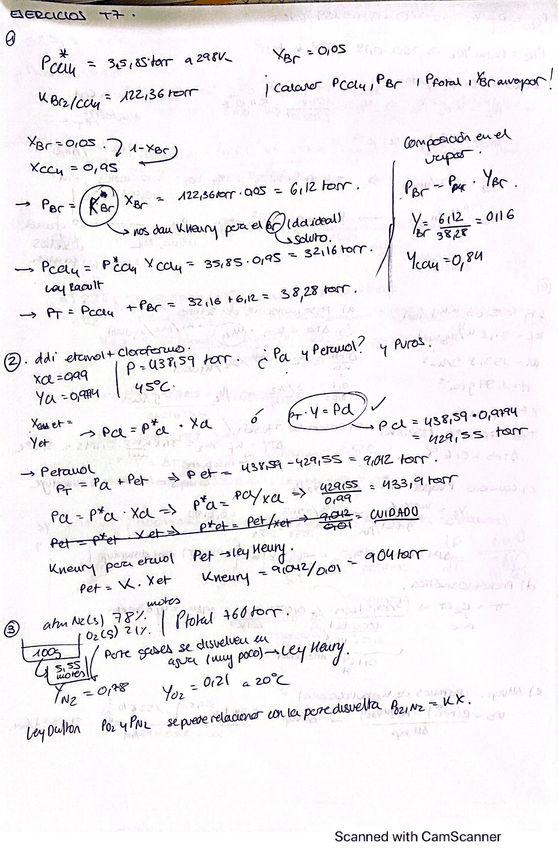 EJERCICIOS T7.
①
P*CCl4 = 35,85 torr a 298K
XBr = 0,05
KBr2/CCl4 = 122,36 torr
¡calcular PCCl4, PBr, Ptotal, YBr en vapor!
XBr = 0,05 ⤵ 1-XBr
XCCl4 = 0,95
→ PBr = K*Br XBr = 122,36 torr · 0,05 = 6,12 torr.
↳ nos dan KHenry para el Br (ddi ideal)
↳ soluto.
→ PCCl4 = P*CCl4 XCCl4 = 35,85 · 0,95 = 32,16 torr.
Ley Raoult
→ PT = PCCl4 + PBr = 32,16 + 6,12 = 38,28 torr.
Composición en el
vapor.
YBr = 6,12/38,28 = 0,16
YCCl4 = 0,84
② . ddi etanol + Cloroformo.
XCl = 0,99
YCl = 0,9794
P = 438,59 torr.
45°C.
¿ PCl y Petanol? y Puros.
Yet
→ PCl = P*Cl · XCl ó PT · Y = PCl ✓
→ PCl = 438,59 · 0,9794
= 429,55 torr
→ Petanol
PT = PCl + Pet ⇒ Pet = 438,59 - 429,55 = 9,042 torr.
PCl = P*Cl · XCl ⇒ P*Cl = PCl/XCl ⇒ 429,55/0,99 = 433,9 torr
Pet = P*et · Xet ⇒ P*et = Pet/Xet → 9,042/0,01 = CUIDADO
KHenry para etanol Pet → Ley Henry.
Pet = K · Xet KHenry = 9,042/0,01 = 904 torr
③ atm N2(g) 78% moles
O2(g) 21%
Ptotal 760 torr.
100g
5,55
moles
Parte gases se disuelven en
agua (muy poco) → Ley Henry.
YN2 = 0,78 YO2 = 0,21 a 20°C
Ley Dalton PO2 y PN2 se puede relacionar con la parte disuelta PO2,N2 = KX.
Scanned with CamScanner